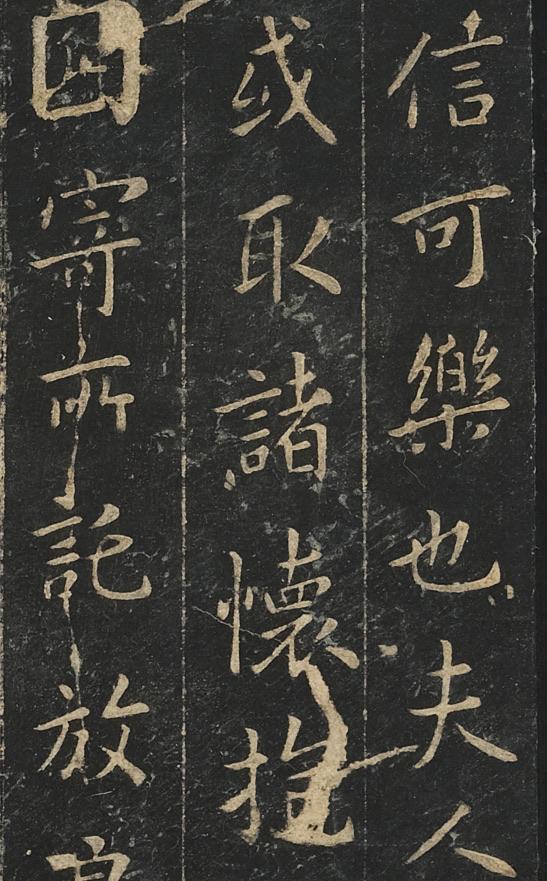 信可樂也夫人
或取諸懷抱
因寄所託放